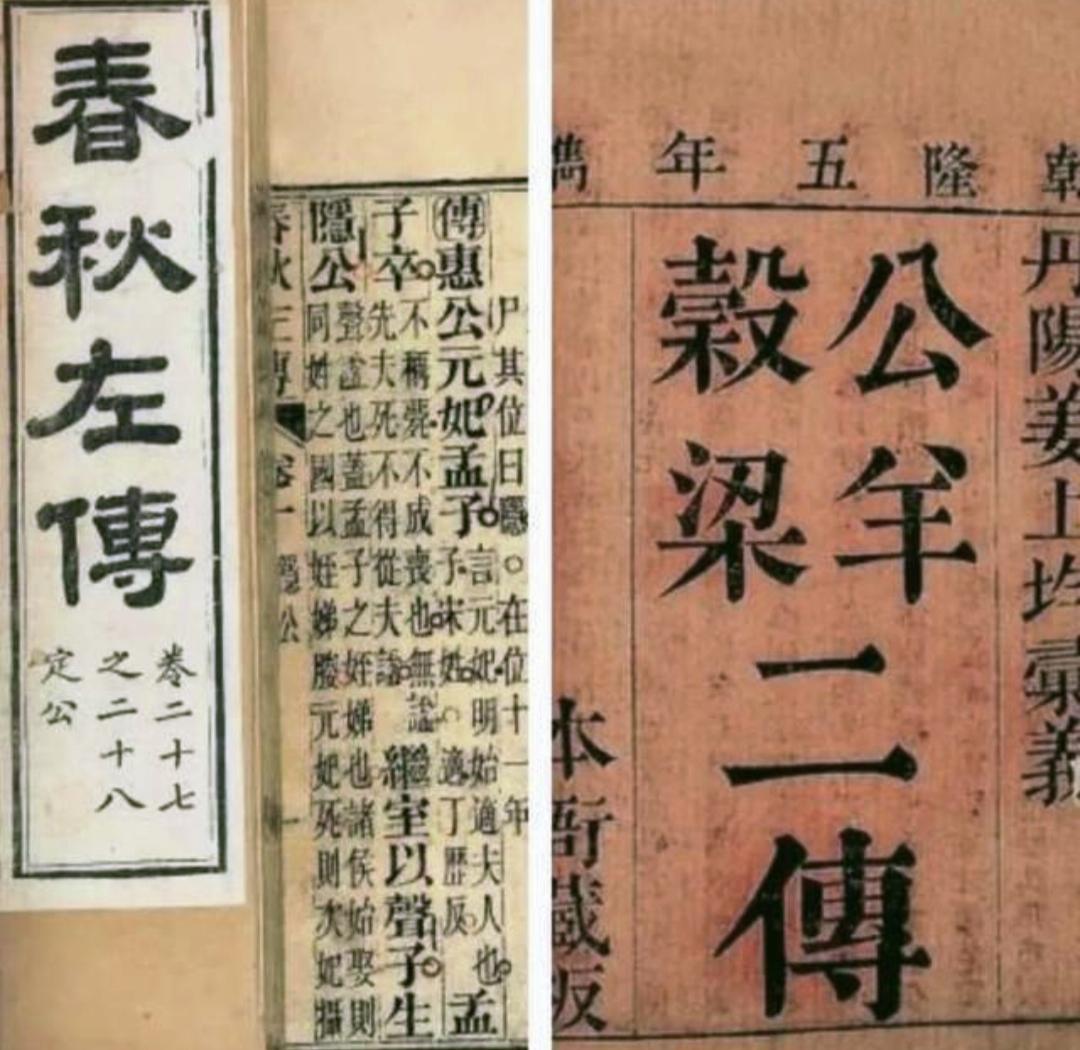 春秋左傳
卷二十七
之二十八
定公
尸其位曰隱。在位十一年
傳惠公元妃孟子
言元妃明始適夫人也
子宋姓。適丁歷反
孟
子卒
不稱薨不成喪也無諡
先夫死不得從夫諡
繼室以聲子生
隱公
聲諡也蓋孟子之姪娣也諸侯始娶則
同姓之國以姪娣媵元妃死則次妃攝
春秋三傳 卷一 隱公 一
乾隆五年鐫
丹陽姜上均彙義
公羊
穀梁
二傳
本衙藏版